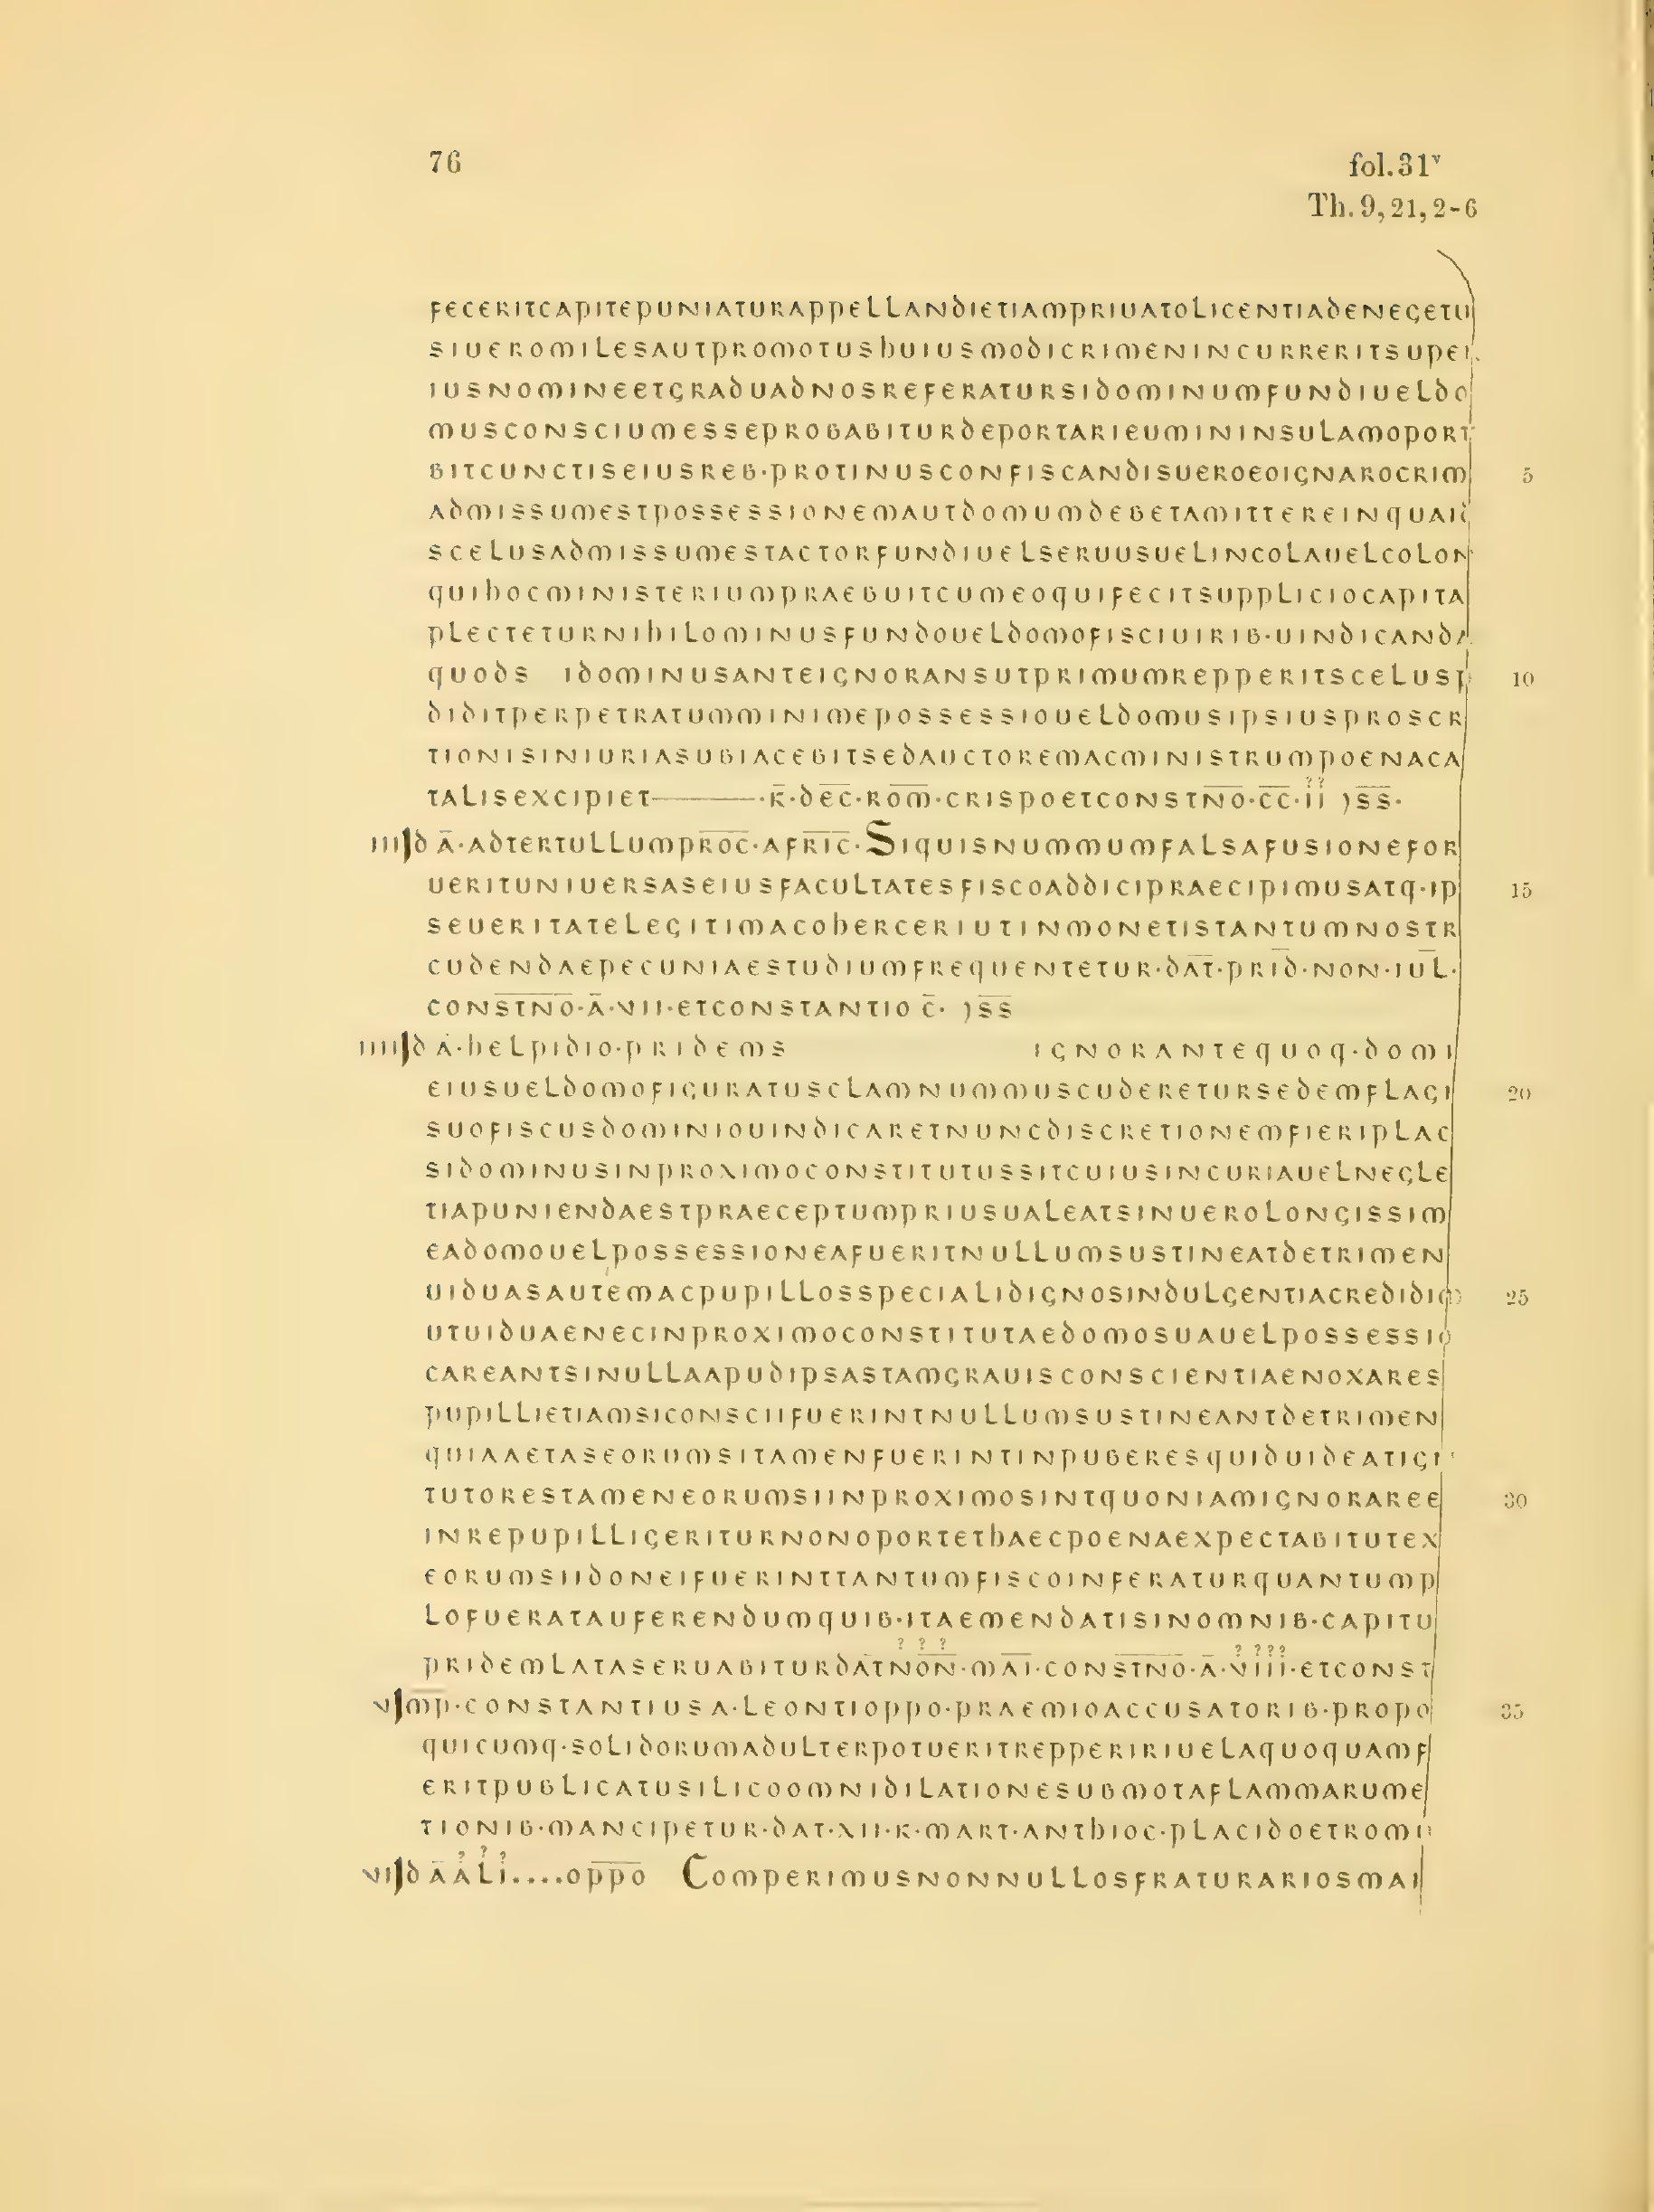 76
fol. 31v
Th. 9, 21, 2-6
FECERITCAPITEPUNIATURAPPELLANDIETIAMPRIUATOLICENTIADENEGETU
SIUEROMILESAUTPROMOTUSHUIUSMODICRIMENINCURRERITSUPE
IUSNOMINEETGRADUADNOSREFERATURSIDOMINUMFUNDIUELDO
MUSCONSCIUMESSEPROBABITURDEPORTARIEUMININSULAMOPORT
BITCUNCTISEIUSREB·PROTINUSCONFISCANDISUEROEOIGNAROCRIM
5
ADMISSUMESTPOSSESSIONEMAUTDOMUMDEBETAMITTEREINQUAI
SCELUSADMISSUMESTACTORFUNDIUELSERUUSUELINCOLAUELCOLON
QUIHOCMINISTERIUMPRAEBUITCUMEOQUIFECITSUPPLICIOCAPITA
PLECTETURNIHILOMINUSFUNDOUELDOMOFISCIUIRIB·UINDICANDA
QUODS IDOMINUSANTEIGNORANSUTPRIMUMREPPERITSCELUSP
10
DIDITPERPETRATUMMINIMEPOSSESSIOUELDOMUSIPSIUSPROSCR
TIONISINIURIASUBIACEBITSEDAUCTOREMACMINISTRUMPOENACA
TALISEXCIPIET———·K̄·DE̅C̅·RO̅M̅·CRISPOETCONSTN̅O̅·C̅C̅·II )S̅S̅·
IIII D Ā·ADTERTULLUMPR̅O̅C̅·AFR̅I̅C̅·SIQUISNUMMUMFALSAFUSIONEFOR
UERITUNIUERSASEIUSFACULTATESFISCOADDICIPRAECIPIMUSATQ·IP
15
SEUERITATELEGITIMACOHERCERIUTINMONETISTANTUMNOSTR
CUDENDAEPECUNIAESTUDIUMFREQUENTETUR·DA̅T̅·PRID̅·NON·IUL̅·
CONS̅T̅N̅O̅·Ā·VII·ETCONSTANTIO C̄· )S̅S̅
IIIII D A·HELPIDIO·PRIDEMS IGNORANTEQUOQ·DOMI
EIUSUELDOMOFIGURATUSCLAMNUMMUSCUDERETURSEDEMFLAGI
20
SUOFISCUSDOMINIOUINDICARETNUNCDISCRETIONEMFIERIPLAC
SIDOMINUSINPROXIMOCONSTITUTUSSITCUIUSINCURIAUELNEGLE
TIAPUNIENDAESTPRAECEPTUMPRIUSUALEATSINUEROLONGISSIM
EADOMOUELPOSSESSIONEAFUERITNULLUMSUSTINEATDETRIMEN
UIDUASAUTEMACPUPILLOSSPECIALIDIGNOSINDULGENTIACREDIDI
25
UTUIDUAENECINPROXIMOCONSTITUTAEDOMOSUAUELPOSSESSIO
CAREANTSINULLAAPUDIPSASTAMGRAUISCONSCIENTIAENOXARES
PUPILLIETIAMSICONSCIIFUERINTNULLUMSUSTINEANTDETRIMEN
QUIAAETASEORUMSITAMENFUERINTINPUBERESQUIDUIDEATIGI
TUTORESTAMENEORUMSIINPROXIMOSINTQUONIAMIGNORAREE
30
INREPUPILLIGERITURNONOPORTETHAECPOENAEXPECTABITUTEX
EORUMSIIDONEIFUERINTTANTUMFISCOINFERATURQUANTUMP
LOFUERATAUFERENDUMQUIB·ITAEMENDATISINOMNIB·CAPITU
PRIDEMLATASERUABITURDA̅T̅NO̅N̅·MA̅I̅·CONS̅T̅N̅O̅·Ā·VIIII·ETCONST
VI M̅P̅·CONSTANTIUSA·LEONTIOPPO·PRAEMIOACCUSATORIB·PROPO
35
QUICUMQ·SOLIDORUMADULTERPOTUERITREPPERIRIUELAQUOQUAMF
ERITPUBLICATUSILICOOMNIDILATIONESUBMOTAFLAMMARUME
TIONIB·MANCIPETUR·DAT·XII·K·MART·ANTHIOC·PLACIDOETROMU
VII D Ā ALI....OP̅P̅O̅ COMPERIMUSNONNULLOSFRATURARIOSMAI